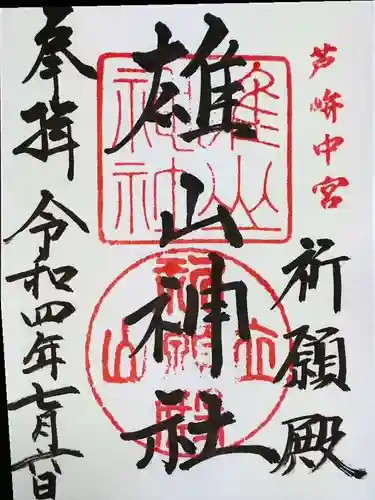 芦峅中宮
祈願殿
雄山神社
雄山神社
立山祈願殿
奉拝
令和四年七月廿日